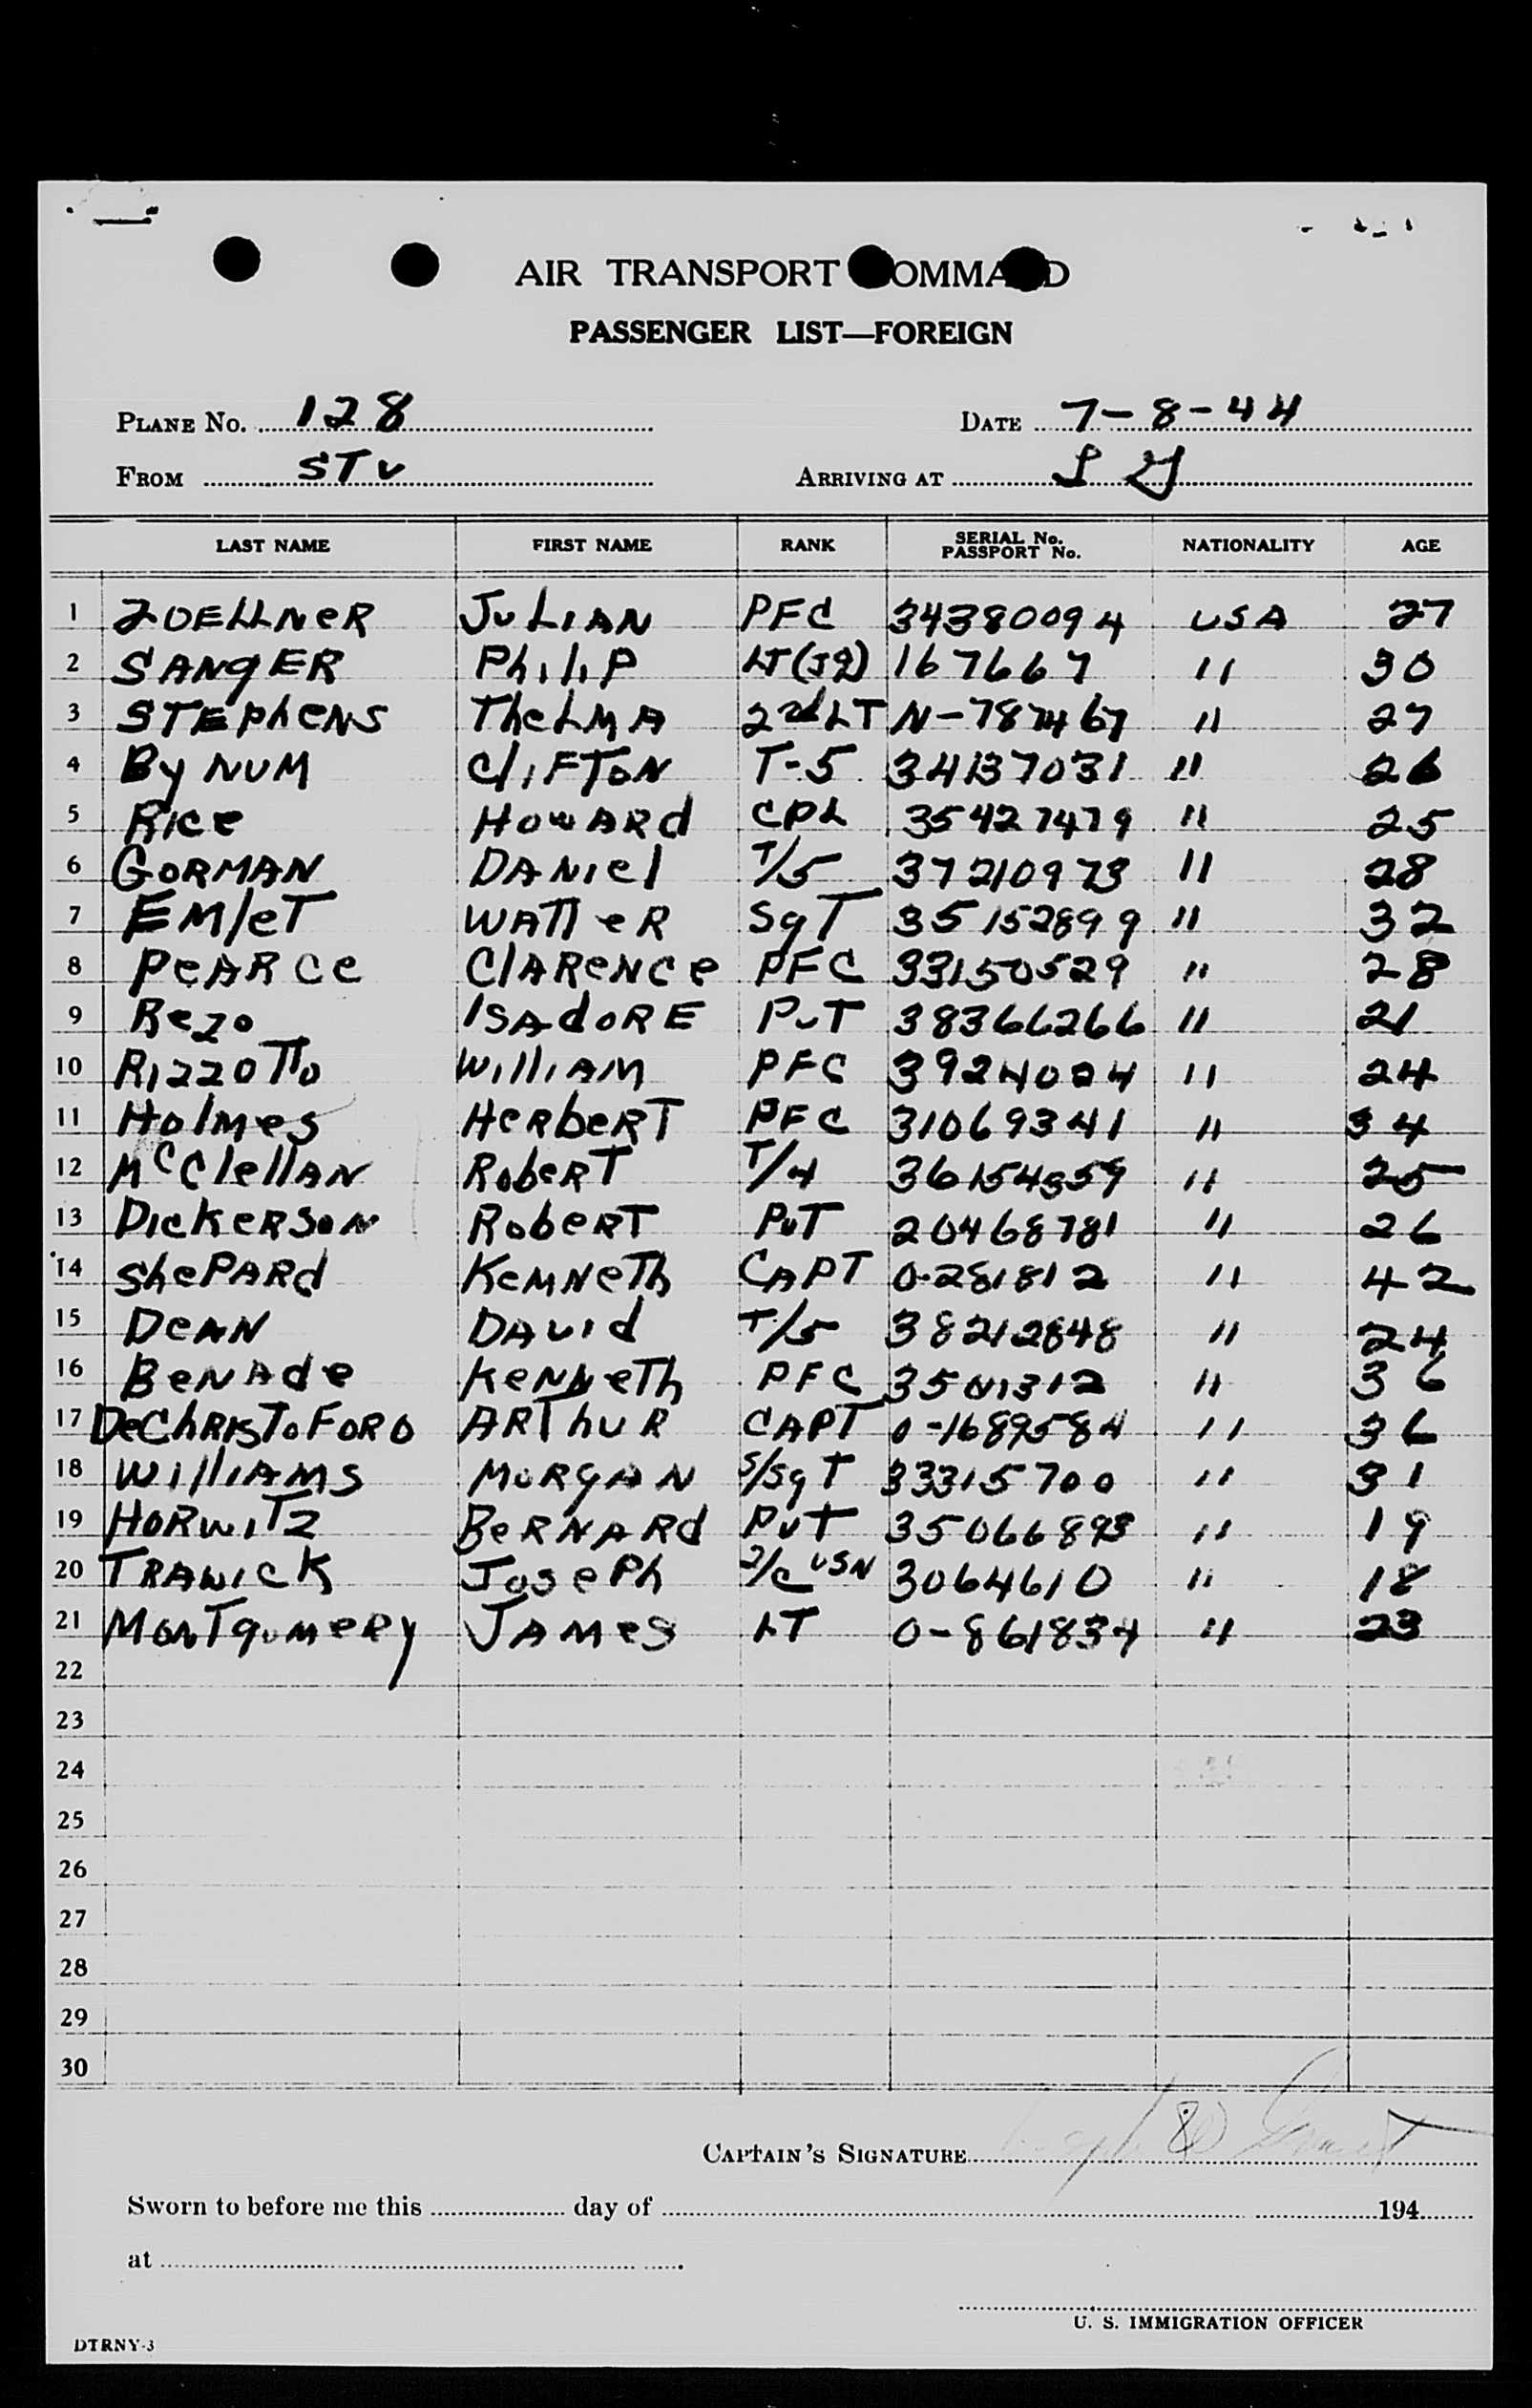 AIR TRANSPORT COMMAND
PASSENGER LIST—FOREIGN
PLANE No. 128 DATE 7-8-44
FROM STV ARRIVING AT
LAST NAME FIRST NAME RANK SERIAL No. PASSPORT No. NATIONALITY AGE
1 ZOELLNER JULIAN PFC 34380094 USA 27
2 SANGER PHILIP LT(JG) 167667 " 30
3 STEPHENS THELMA 2nd LT N-787467 " 27
4 BYNUM CLIFTON T-5 34137031 " 26
5 RICE HOWARD CPL 35427479 " 25
6 GORMAN DANIEL T/5 37210973 " 28
7 EMLET WALTER SGT 35152899 " 32
8 PEARCE CLARENCE PFC 33150529 " 28
9 BEZO ISADORE PVT 38366266 " 21
10 RIZZOTTO WILLIAM PFC 39240024 " 24
11 HOLMES HERBERT PFC 31069341 " 34
12 McCLELLAN ROBERT T/4 36154559 " 25
13 DICKERSON ROBERT PVT 20468781 " 26
14 SHEPARD KEMNETH CAPT O-281812 " 42
15 DEAN DAVID T/5 38212848 " 24
16 BENADE KENNETH PFC " 36
17 DeCHRISTOFORO ARTHUR CAPT O-1689584 " 36
18 WILLIAMS MORGAN S/SGT 33315700 " 31
19 HORWITZ BERNARD PVT 35066893 " 19
20 TRAWICK JOSEPH 2/C USN 3064610 " 18
21 MONTGOMERY JAMES LT O-861834 " 23
22
23
24
25
26
27
28
29
30
CAPTAIN'S SIGNATURE
Sworn to before me this day of 194
at
U. S. IMMIGRATION OFFICER
DTRNY-3